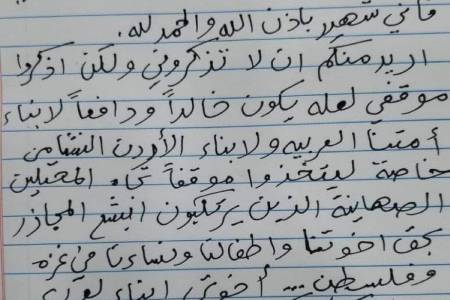 فأني شهيد بإذن الله والحمد لله.
اريد منكم ان لا تذكروني ولكن اذكروا
موقفي لعله يكون خالداً ودافعاً لابناء
أمتنا العربيه ولابناء الأردن النشامى
خاصة ليتخذوا موقفاً تجاه المحتلين
الصهاينة الذين يرتكبون ابشع المجازر
بحق اخوتنا واطفالنا ونساءنا في غزه
وفلسطين ... أخوتي ابناء